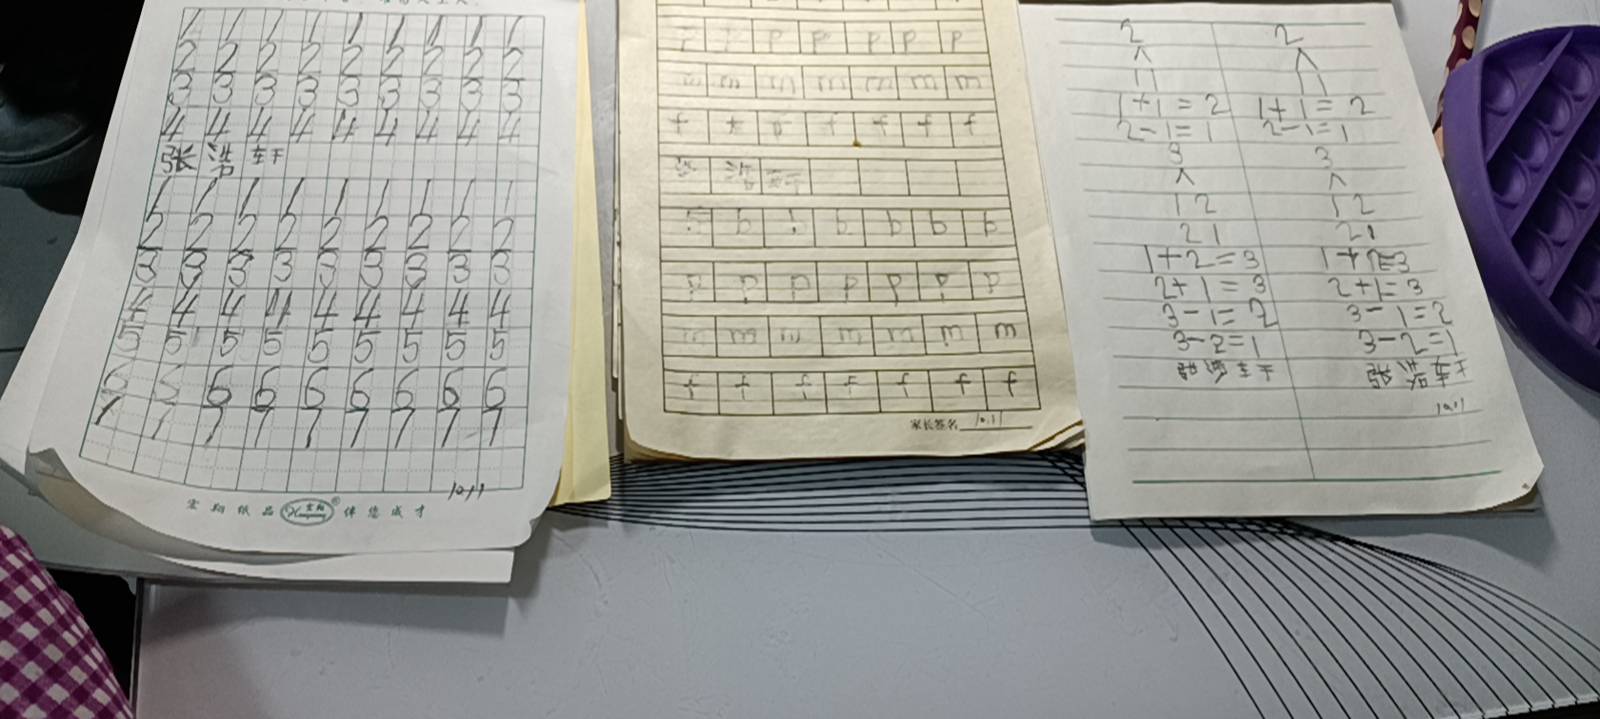 1 1 1 1 1 1 1 1 1
2 2 2 2 2 2 2 2 2
3 3 3 3 3 3 3 3 3
4 4 4 4 4 4 4 4 4
张 浩 轩
1 1 1 1 1 1 1 1 1
2 2 2 2 2 2 2 2 2
3 3 3 3 3 3 3 3 3
4 4 4 4 4 4 4 4 4
5 5 5 5 5 5 5 5 5
6 6 6 6 6 6 6 6 6
1 1 7 7 7 7 7 7 7
10.11
宏翔纸品 宏翔 ® 伴您成才
p p p p p p p
m m m m m m m
f f f f f f f
张 浩 轩
b b b b b b b
p p p p p p p
m m m m m m m
f f f f f f f
家长签名 10.11
2 2
∧ ∧
1 1 1 1
1+1=2 1+1=2
2-1=1 2-1=1
3 3
∧ ∧
1 2 1 2
2 1 2 1
1+2=3 1+2=3
2+1=3 2+1=3
3-1=2 3-1=2
3-2=1 3-2=1
张浩轩 张浩轩
10.11